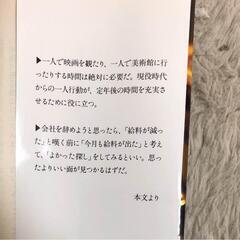 ▶一人で映画を観たり、一人で美術館に行
ったりする時間は絶対に必要だ。現役時代
からの一人行動が、定年後の時間を充実さ
せるために役に立つ。
▶会社を辞めようと思ったら、「給料が減っ
た」と嘆く前に「今月も給料が出た」と考え
て、「よかった探し」をしてみるといい。思っ
たよりいい面が見つかるはずだ。
本文より